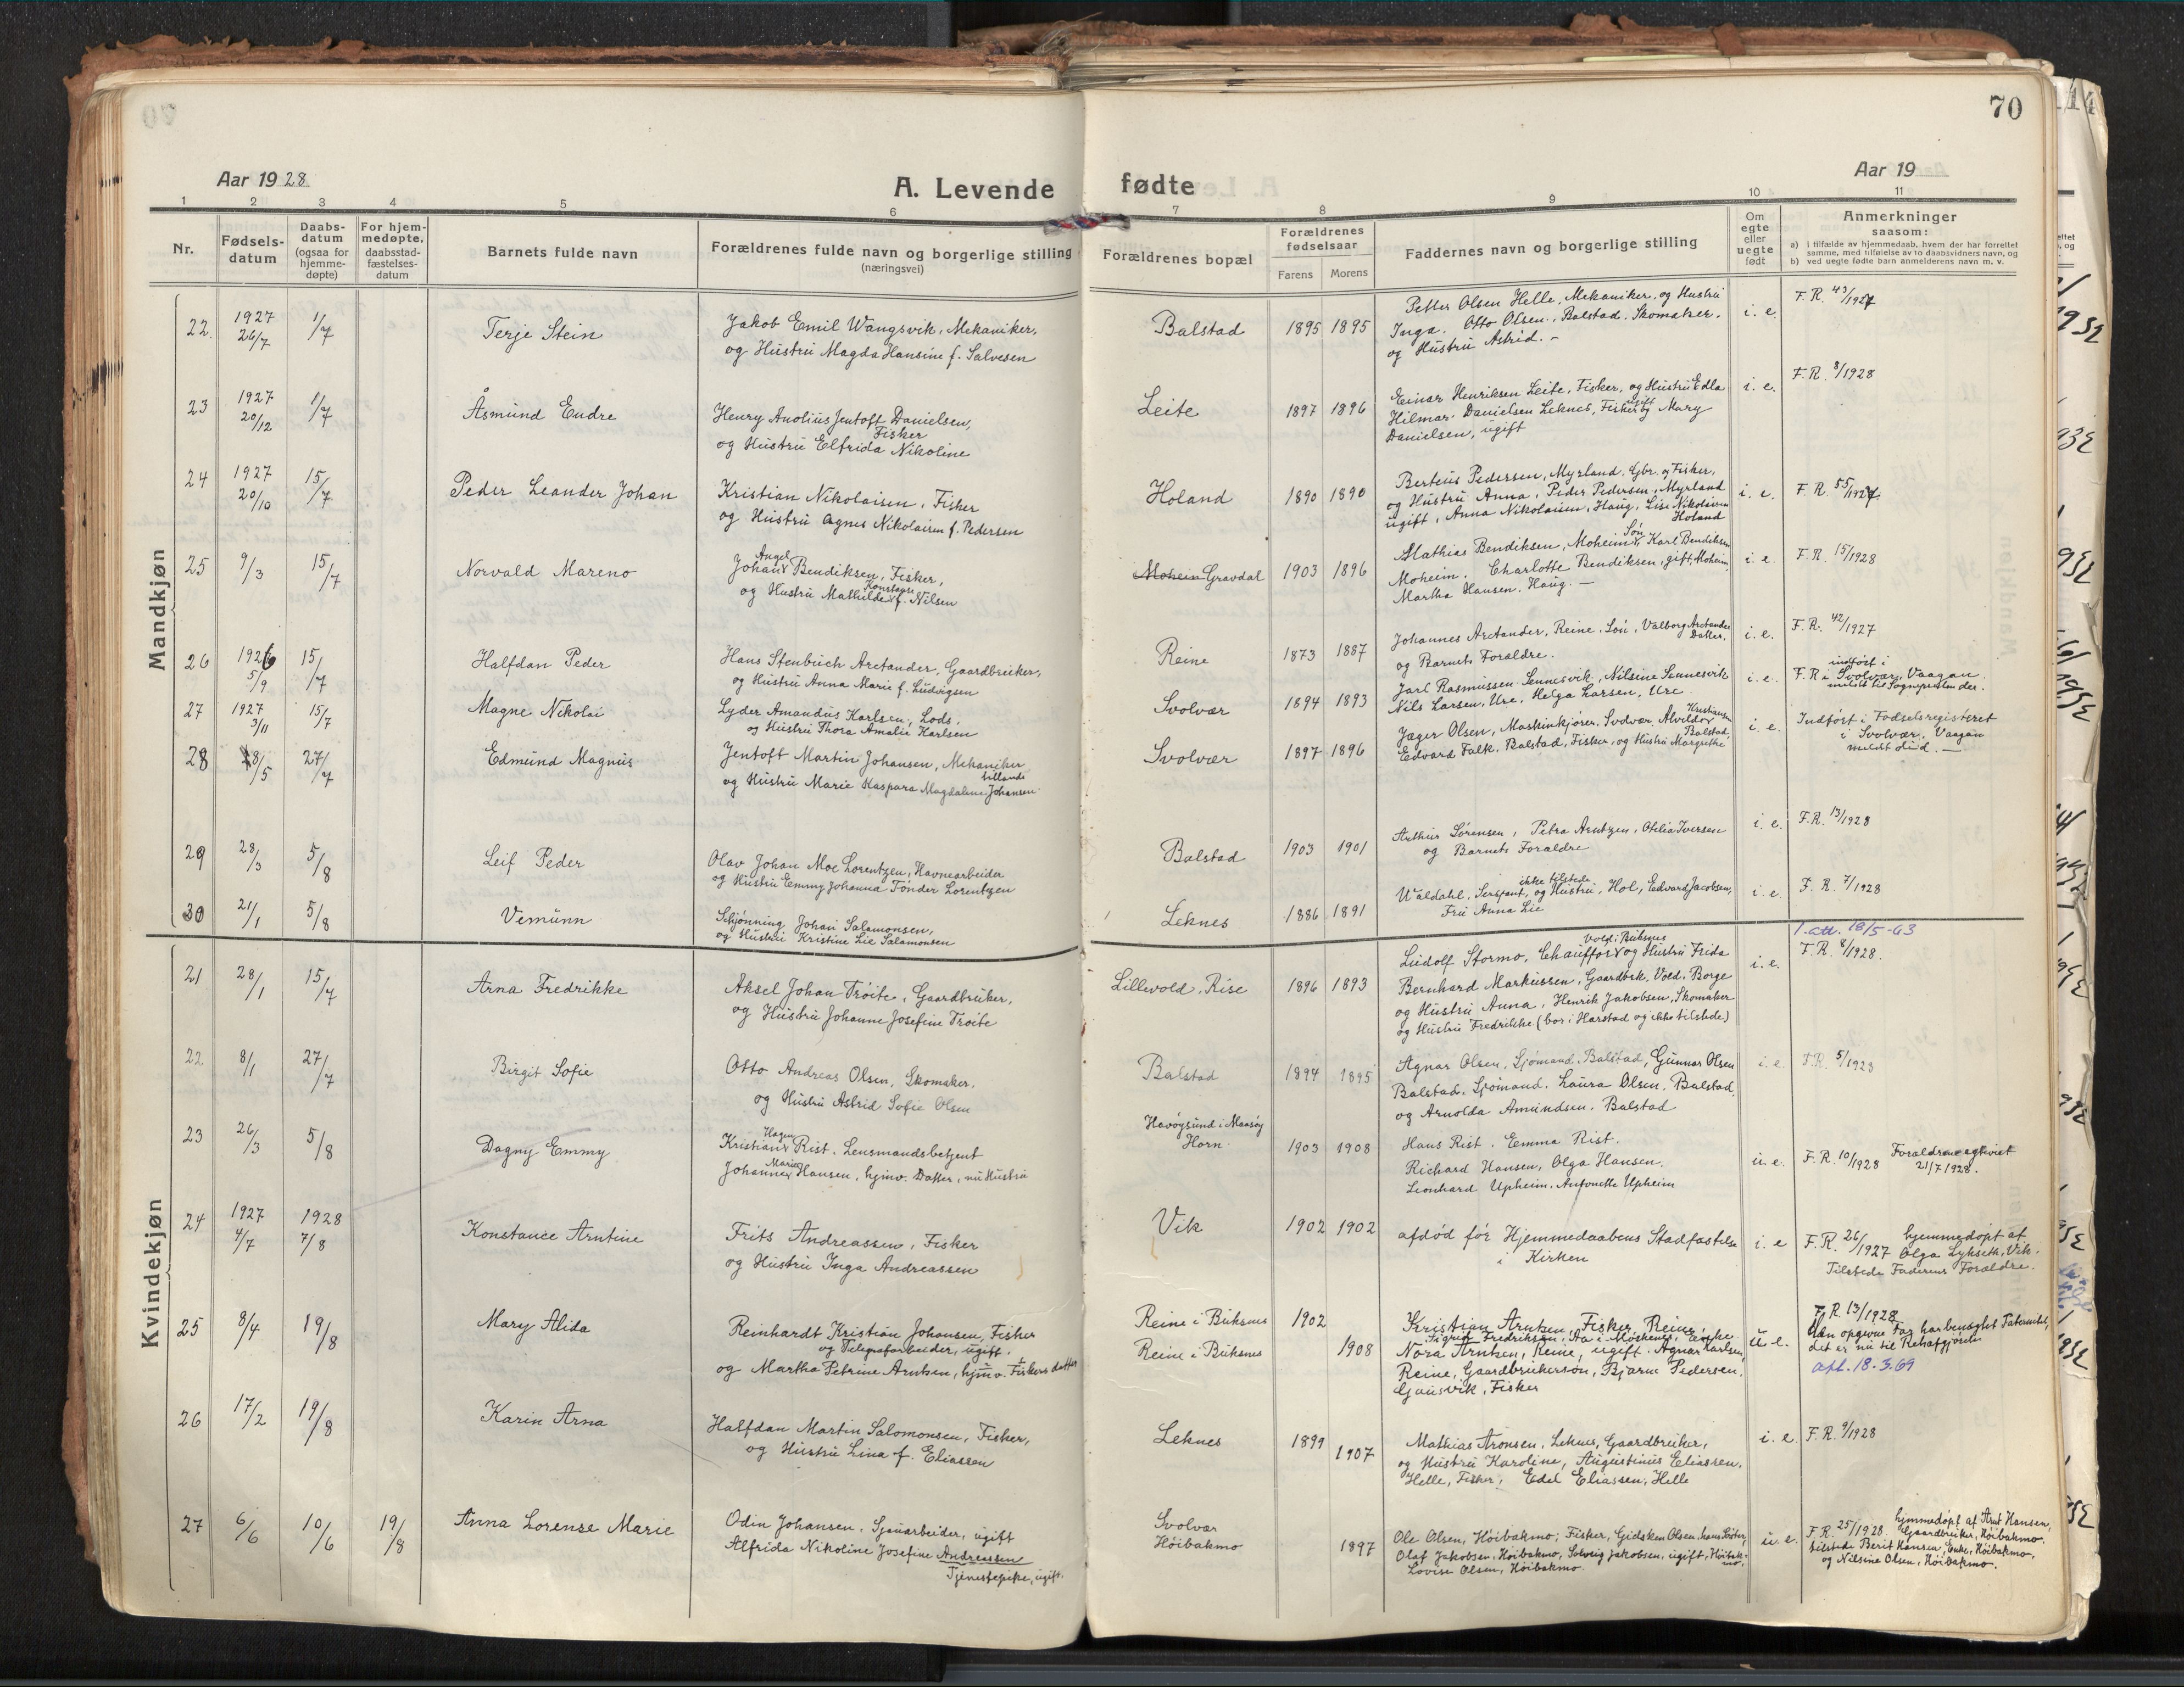 70
Aar 1928
A. Levende fødte
Aar 19
1 2 3 4 5 6 7 8 9 10 11
Nr.
Fødsels-
datum
Daabs-
datum
(ogsaa for
hjemme-
døpte)
For hjem-
medøpte,
daabsstad-
fæstelses-
datum
Barnets fulde navn
Forældrenes fulde navn og borgerlige stilling
(næringsvei)
Forældrenes bopæl
Forældrenes
fødselsaar
Farens Morens
Faddernes navn og borgerlige stilling
Om
egte
eller
uegte
født
Anmerkninger
saasom:
a) i tilfælde av hjemmedaab, hvem der har forrettet
samme, med tilføielse av to daabsvidners navn, og
b) ved uegte fødte barn anmelderens navn m. v.
Mandkjøn
22. 1927 26/7 1/7 Terje Stein
Jakob Emil Wangsvik, Mekaniker,
og Hustru Magda Hansine f. Salvesen
Balstad 1895 1895
Petter Olsen Helle, Mekaniker, og Hustru
Inga. Otto Olsen, Balstad, Skomaker,
og Hustru Astrid. –
i. e. F. R. 43/1927
23 1927 20/12 1/7 Åsmund Endre
Henry Anolius Jentoft Danielsen,
Fisker
og Hustru Elfrida Nikoline
Leite 1897 1896
Einar Henriksen Leite, Fisker, og Hustru Edla
Hilmar Danielsen Leknes, Fisker ugift og Mary
Danielsen, ugift
i. e. F. R. 8/1928
24 1927 20/10 15/7 Peder Leander Johan
Kristian Nikolaisen, Fisker
og Hustru Agnes Nikolaisen f. Pedersen
Holand 1890 1890
Berteus Pedersen, Myrland, Gbr. og Fisker,
og Hustru Anna, Peder Pedersen, Myrland
ugift, Anna Nikolaisen, Haug, Lise Nikolaisen
Holand
i. e. F. R. 55/1927
25 9/3 15/7 Norvald Mareno
Johan Angel Bendiksen, Fisker,
og Hustru Mathilde Konstanse f. Nilsen
Moheim Gravdal 1903 1896
Mathias Bendiksen, Moheim, Søn Karl Bendiksen
Moheim. Charlotte Bendiksen, gift, Moheim,
Martha Hansen, Haug. –
i. e. F. R. 15/1928
26 1926 5/9 15/7 Halfdan Peder
Hans Stenbuch Arctander, Gaardbruker,
og Hustru Anna Marie f. Ludvigsen
Reine 1873 1887
Johannes Arctander, Reine, Søn, Valborg Arctander
Datter,
og Barnets Forældre.
i. e. F. R. 42/1927
27 1927 3/11 15/7 Magne Nikolai
Lyder Amandus Karlsen, Lods,
og Hustru Thora Amalie Karlsen
Svolvær 1894 1893
Jarl Rasmussen Sennesvik, Nilsine Sennesvik
Nils Larsen, Ure, Helga Larsen, Ure.
i. e. F. R. indført i
i Svolvær, Vaagan.
meldt til Sognepresten der.
28 28/5 27/7 Edmund Magnus
Jentoft Martin Johansen, Mekaniker
og Hustru Marie Kaspara Magdalene Johansen
Svolvær 1897 1896
Jæger Olsen, Maskinkjører, Svolvær, Alvilda Kristiansen
Balstad,
Edvard Falk, Balstad, Fisker, og Hustru Margrethe
i. e. Indført i Fødselsregisteret
i Svolvær, Vaagan
meldt did. –
29 28/3 5/8 Leif Peder
Olav Johan Moe Lorentzen, Havnearbeider
og Hustru Emmy Johanna Tønder Lorentzen
Balstad 1903 1901
Arthur Sørensen, Petra Arntzen, Otelia Iversen
og Barnets Forældre
i. e. F. R. 13/1928
30 21/1 5/8 Vemunn
Schjønning Johan Salamonsen,
og Hustru Kristine Lie Salamonsen
Leknes 1886 1891
Waldahl, Sersjant, ikke tilstede og Hustru, Hol, Edvard Jacobsen,
Fru Anna Lie
i. e. F. R. 7/1928
Kvindekjøn
21 28/1 15/7 Arna Fredrikke
Aksel Johan Trøite, Gaardbruker,
og Hustru Johanne Josefine Trøite
Lillevold, Rise 1896 1893
Ludolf Stormo, Chauffør Vold i Buksnes og Hustru Frida
Bernhard Markussen, Gaardbrk. Vold, Borge
og Hustru Anna, Henrik Jakobsen, Skomaker
og Hustru Fredrikke (bor i Harstad og ikke tilstede)
i. e. 1. att. 18/5-63
F. R. 8/1928.
22 8/1 27/7 Birgit Sofie
Otto Andreas Olsen, Skomaker,
og Hustru Astrid Sofie Olsen
Balstad 1894 1895
Agnar Olsen, Sjømand, Balstad, Gunnar Olsen
Balstad, Sjømand, Laura Olsen, Balstad,
og Arnolda Amundsen, Balstad
i. e. F. R. 5/1928
23 26/3 5/8 Dagny Emmy
Kristian Hagen Rist, Lensmandsbetjent
Johanne Marie Hansen, hjmv. Datter, nu Hustru
Havøysund i Maasøy
Horn 1903 1908
Hans Rist. Emma Rist.
Richard Hansen, Olga Hansen.
Leonhard Upheim, Antonette Upheim
u. e. F. R. 10/1928 Forældrene egteviet
21/7 1928.
24 1927 4/7 1928 7/8 Konstance Arntine
Frits Andreassen, Fisker
og Hustru Inga Andreassen
Vik 1902 1902
afdød før Hjemmedaabens Stadfæstelse
i Kirken
i. e F. R. 26/1927 hjemmedøpt af
Olga Lyhseth, Vik.
Tilstede Faderens Forældre.
25 8/4 19/8 Mary Alida
Reinhardt Kristian Johansen, Fisker
og Telegrafarbeider, ugift.
og Martha Petrine Arntsen, hjmv. Fiskers datter
Reine i Buksnes 1902
Reine i Buksnes 1908
Kristian Arntsen, Fisker, Reine,
Sigrid Fredriksen, Aa i Moskenes, Enke
Nora Arntsen, Reine, ugift. Agnar Karlsen,
Reine, Gaardbrukersøn, Bjarne Pedersen,
Gjausvik, Fisker
u. e. F. R. 13/1928
Den opgivne Far har benegtet Paternitet,
det er nu til Retsafgjørelse
att. 18.3.69
26 17/2 19/8 Karin Arna
Halfdan Martin Salomonsen, Fisker,
og Hustru Lina f. Eliassen
Leknes 1899 1907
Mathias Aronsen, Leknes, Gaardbruker,
og Hustru Karoline, Augustinus Eliassen,
Helle, Fisker, Edel Eliassen, Helle
i. e. F. R. 9/1928
27 6/6 10/6 19/8 Anna Lorense Marie
Odin Johansen, Sjauarbeider, ugift
Alfrida Nikoline Josefine Andreassen
Tjenestepike, ugift.
Svolvær
Høibakmo 1897
Ole Olsen, Høibakmo, Fisker, Gidsken Olsen, hans Søster,
Olaf Jakobsen, Høibakmo, Solveig Jakobsen, ugift, Høibak-
mo,
Lovise Olsen, Høibakmo.
u. e. F. R. 25/1928. hjemmedøpt af Arnt Hansen,
Gaardbruker, Høibakmo.
tilstede Berit Hansen, Enke, Høibakmo,
og Nilsine Olsen, Høibakmo.